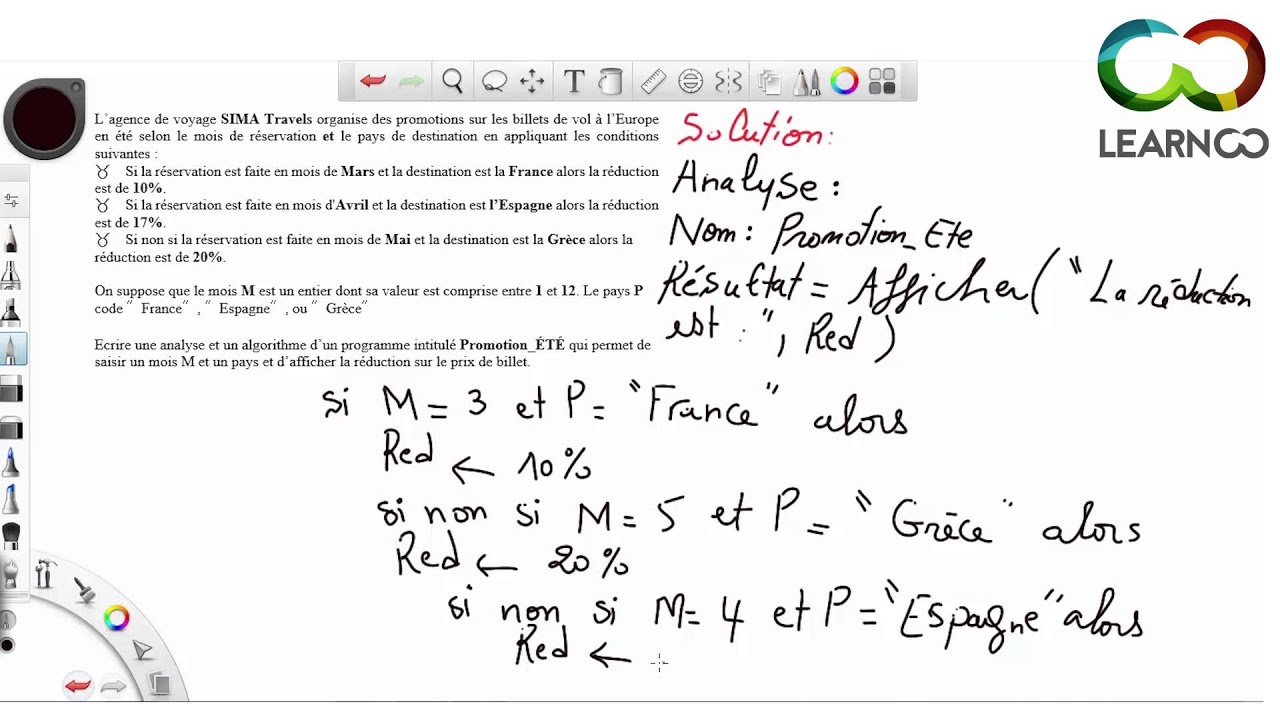 LEARNOO
L'agence de voyage SIMA Travels organise des promotions sur les billets de vol à l'Europe
en été selon le mois de réservation et le pays de destination en appliquant les conditions
suivantes :
♉ Si la réservation est faite en mois de Mars et la destination est la France alors la réduction
est de 10%.
♉ Si la réservation est faite en mois d'Avril et la destination est l'Espagne alors la réduction
est de 17%.
♉ Si non si la réservation est faite en mois de Mai et la destination est la Grèce alors la
réduction est de 20%.
On suppose que le mois M est un entier dont sa valeur est comprise entre 1 et 12. Le pays P
code " France" , " Espagne" , ou " Grèce"
Ecrire une analyse et un algorithme d'un programme intitulé Promotion_ÉTÉ qui permet de
saisir un mois M et un pays et d'afficher la réduction sur le prix de billet.
Solution:
Analyse :
Nom : Promotion_Ete
Résultat = Afficher ( "La réduction
est : ", Red )
si M = 3 et P = "France" alors
Red ← 10%
si non si M = 5 et P = "Grèce" alors
Red ← 20%
si non si M = 4 et P = "Espagne" alors
Red ←